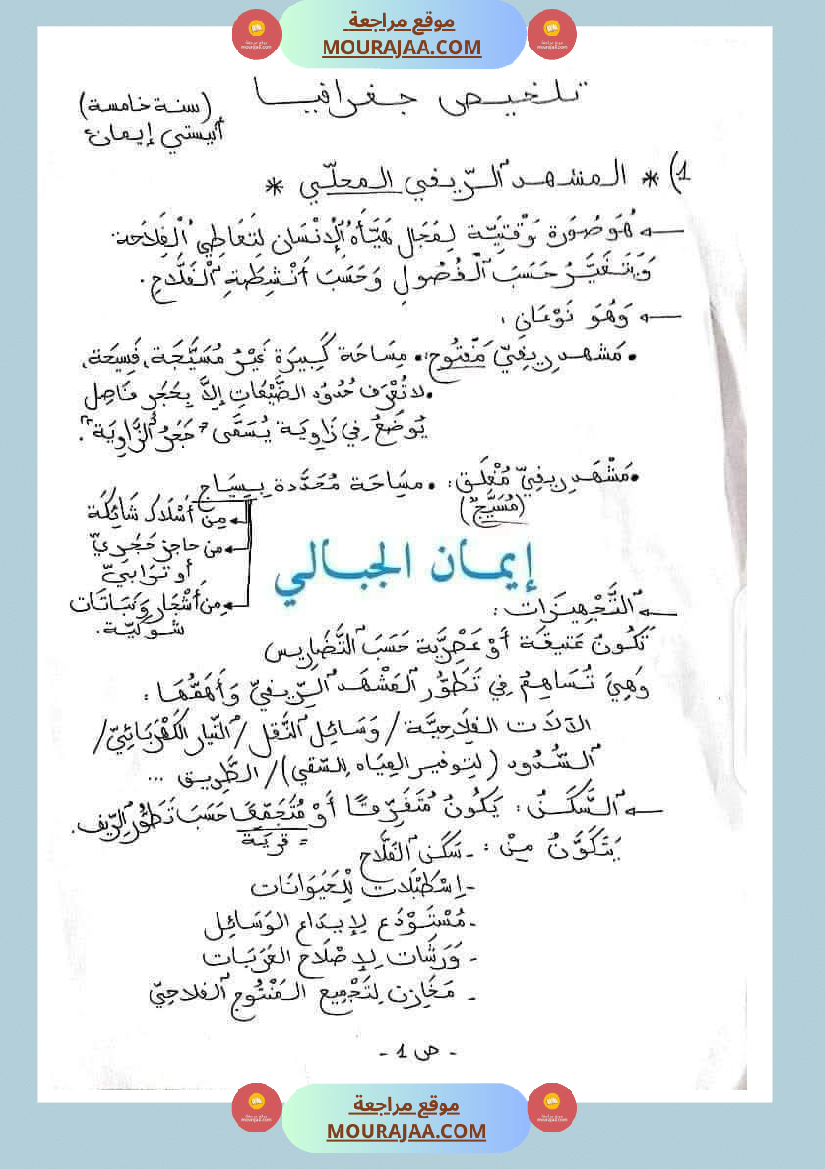 موقع مراجعة
MOURAJAA.COM
تلخيص جغرافيا
(سنة خامسة)
أنيستي إيمان
1) * المشهد الرّيفي المحلّي *
← هُوَ صُورَة وَقْتِيَّة لِمَجَال هَيَّأَهُ الإِنْسَان لِتَعَاطِي الْفِلَاحَة
وَيَتَغَيَّرُ حَسَبَ الْفُصُولِ وَحَسَبَ أَنْشِطَةِ الْفَلَّاحِ.
← وَهُوَ نَوْعَانِ :
• مَشْهَد رِيفِيّ مَفْتُوح: • مِسَاحَة كَبِيرَة غَيْرُ مُسَيَّجَة، فَسِيحَة،
• لا تُعْرَف حُدُودُ الضَّيْعَاتِ إِلَّا بِحَجَرٍ فَاصِل
يُوضَعُ فِي زَاوِيَة يُسَمَّى "حَجَرُ الزَّاوِيَة".
• مَشْهَد رِيفِيّ مُغْلَق: • مِسَاحَة مُحَدَّدَة بِسِيَاج
(مُسَيَّج)
مِن أَسْلَاك شَائِكَة
مِن حاجِز حَجَرِيّ
أو تُرَابِيّ
مِن أَشْجَار وَنَبَاتَات
شَوْكِيَّة.
إيمان الجبالي
← التَّجْهِيزَات :
تَكُونُ عَتِيقَة أَوْ عَصْرِيَّة حَسَبَ التَّضَارِيس
وَهِيَ تُسَاهِمُ فِي تَطَوُّر الْمَشْهَد الرِّيفِيّ وَأَهَمُّهَا :
الآلَات الفِلَاحِيَّة / وَسَائِل النَّقْل / التَّيَار الْكَهْرَبَائِيّ /
السُّدُود (لِتوفير المِيَاه لِلسَّقي) / الطَّرِيق ...
← السَّكَنُ : يَكُونُ مُتَفَرِّقًا أَوْ مُتَجَمِّعًا حَسَبَ تَطَوُّر الرِّيف.
= قَرْيَة
يَتَكَوَّنُ مِنْ : - سَكَن الفَلَّاح
- إِسْطَبْلَات لِلْحَيَوَانَات
- مُسْتَوْدَع لِإِيدَاع الوَسَائِل
- وَرَشَات لِإِصْلَاح العَرَبَات
- مَخَازِن لِتَجْمِيع المَنْتُوج الفلاحِيّ
- ص 1 -
موقع مراجعة
MOURAJAA.COM